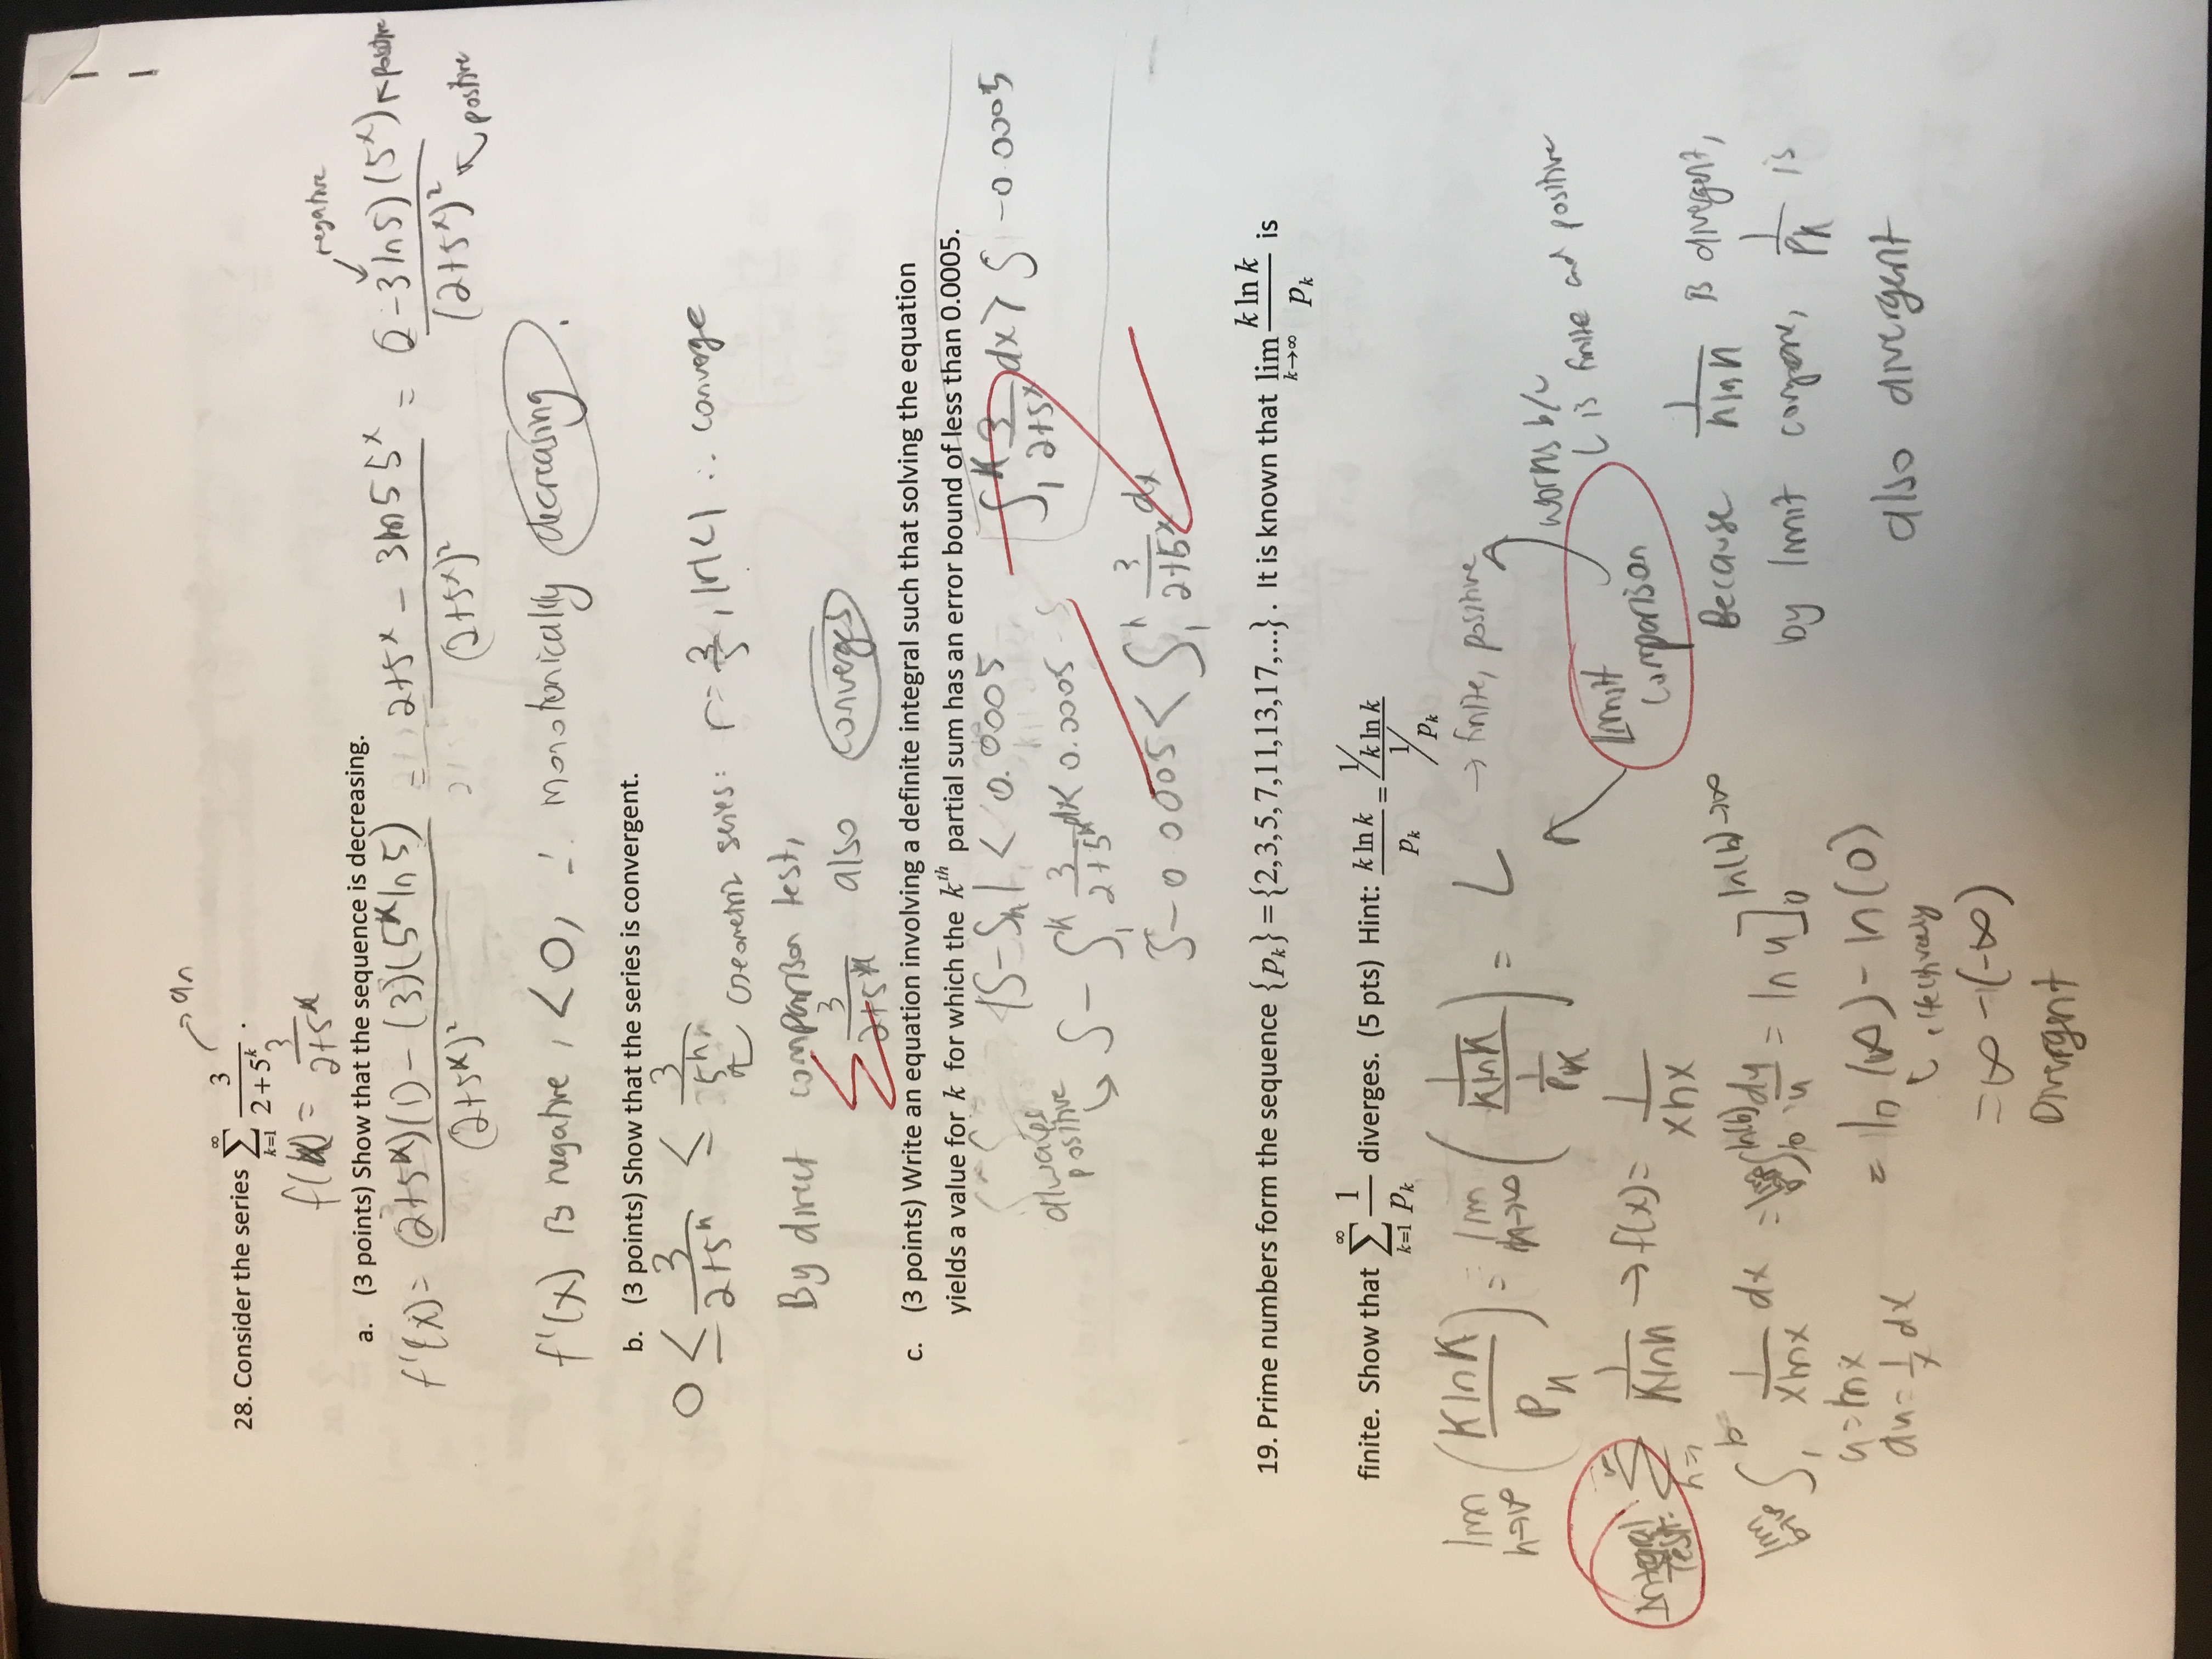 → an
28. Consider the series ∑_{k=1}^{∞} 3/(2+5^k).
f(x) = 3/(2+5^x)
negative
a. (3 points) Show that the sequence is decreasing.
f'(x) = ((2+5^x)(1) − (3)(5^x ln 5))/(2+5^x)² = (2+5^x − 3 ln5 5^x)/(2+5^x)² = ((2−3 ln 5)(5^x))/(2+5^x)² ← positive
↖ positive
f'(x) is negative, < 0, ∴ monotonically decreasing.
b. (3 points) Show that the series is convergent.
0 ≤ 3/(2+5^n) ≤ 3/5^n
Geometric series: r = 3/5, |r|<1 ∴ converge
By direct comparison test,
∑ 3/(2+5^k) also converges
c. (3 points) Write an equation involving a definite integral such that solving the equation
yields a value for k for which the k^th partial sum has an error bound of less than 0.0005.
|S−S_n| < 0.0005
∫_1^k 3/(2+5^x) dx > S − 0.0005
always
positive
S − ∫_1^k 3/(2+5^x) dx < 0.0005 − S
S − 0.0005 < ∫_1^n 3/(2+5^x) dx
19. Prime numbers form the sequence {p_k} = {2,3,5,7,11,13,17,...}. It is known that lim_{k→∞} (k ln k)/p_k is
finite. Show that ∑_{k=1}^{∞} 1/p_k diverges. (5 pts) Hint: (k ln k)/p_k = (1/k ln k)/(1/p_k)
lim_{n→∞} (K ln K / P_n) = lim_{n→∞} ((1/(K ln K))/(1/P_k)) = L → finite, positive
works b/c
L is finite and positive
Limit
comparison
Integral
Test:
∑ 1/(K ln n) → f(x) = 1/(x ln x)
Because 1/(n ln n) is divergent,
lim_{b→∞} ∫_1^b 1/(x ln x) dx = lim ∫_0^{ln(b)} du/u = ln u]_0^{ln(b)→∞}
by limit compare, 1/P_k is
u = ln x
du = 1/x dx
= ln(∞) − ln(0)
also divergent
effectively
= ∞ − (−∞)
Divergent